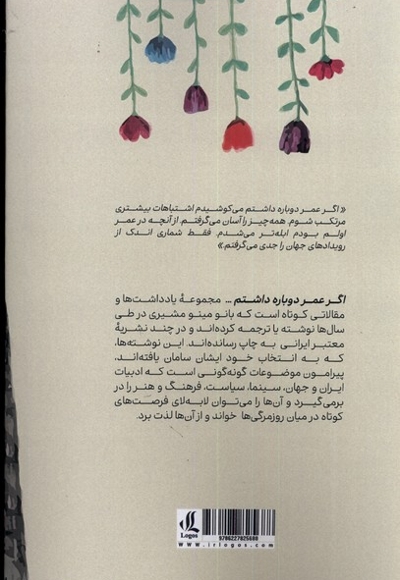 «اگر عمر دوباره داشتم می‌کوشیدم اشتباهات بیشتری
مرتکب شوم. همه‌چیز را آسان می‌گرفتم. از آنچه در عمر
اولم بودم ابله‌تر می‌شدم. فقط شماری اندک از
رویدادهای جهان را جدی می‌گرفتم»
اگر عمر دوباره داشتم ... مجموعهٔ یادداشت‌ها و
مقالاتی کوتاه است که بانو مینو مشیری در طی
سال‌ها نوشته یا ترجمه کرده‌اند و در چند نشریهٔ
معتبر ایرانی به چاپ رسانده‌اند. این نوشته‌ها،
که به انتخاب خود ایشان سامان یافته‌اند،
پیرامون موضوعات گونه‌گونی است که ادبیات
ایران و جهان، سینما، سیاست، فرهنگ و هنر را در
برمی‌گیرد و آن‌ها را می‌توان لابه‌لای فرصت‌های
کوتاه در میان روزمرگی‌ها خواند و از آن‌ها لذت برد.
Logos
www.irlogos.com